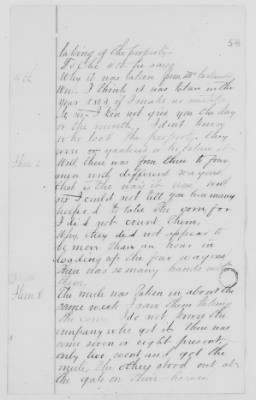 58
taking of the property.
To the 4th he says
4th Why it was taken from Mr
Wm. I think it was taken in the
year 1864 if I make no mistake
no sir I can not give you the day
or the month, I dont know
who took the property they
were yankees who taken it
Item 1. Well there was from three to four
men with different wagons
that is the way it was, well
sir I could not tell you how many
helped to take the corn for
I did not count them,
Why they did not appear to
be more than an hour in
loading up the four wagons
there was so many hands with
them.
Item 2. The mule was taken in about the
same week I saw them taking
the corn. I do not know the
company who got it there was
some seven or eight present,
only two went and got the
mule, the others stood out at
the gate on their horses